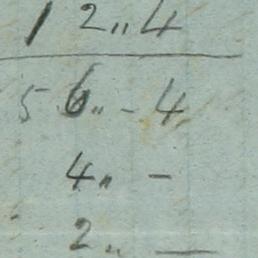 1 2 ,, 4
5 6 ,, - 4
4 ,, -
2 ,, —